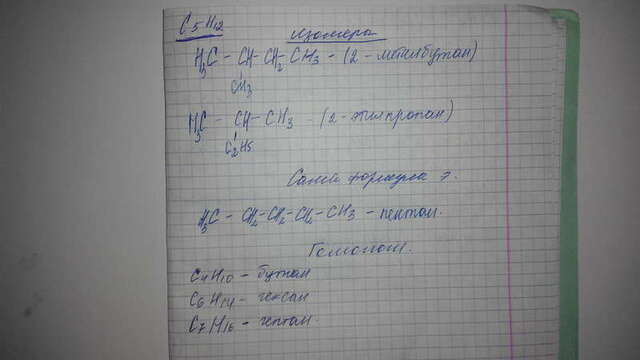 C5H12 Изомеры
H3C - CH - CH2 - CH3 - (2-метилбутан)
CH3
H3C - CH - CH3 - (2-этилпропан)
C2H5
Сама формула
H3C - CH2 - CH2 - CH2 - CH3 - пентан.
Гомологи.
C4H10 - бутан
C6H14 - гексан
C7H16 - гептан.